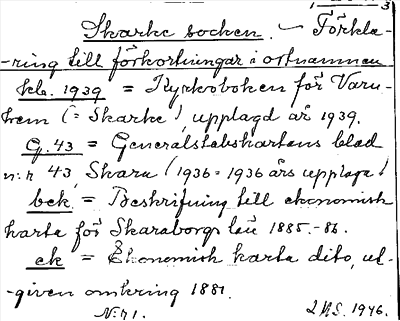 Skarke socken. – Förkla-
-ring till förkortningar i ortnamnen
kb. 1939 = Kyrkoboken för Varn-
hem (= Skarke), upplagd år 1939.
G. 43 = Generalstabskartans blad
n:r 43, Skara (1936 = 1936 års upplaga)
bek = Beskrifning till ekonomisk
karta för Skaraborgs län 1885.-86.
ek = Ekonomisk karta dito, ut-
-given omkring 1881.
N:r 1. 1946.